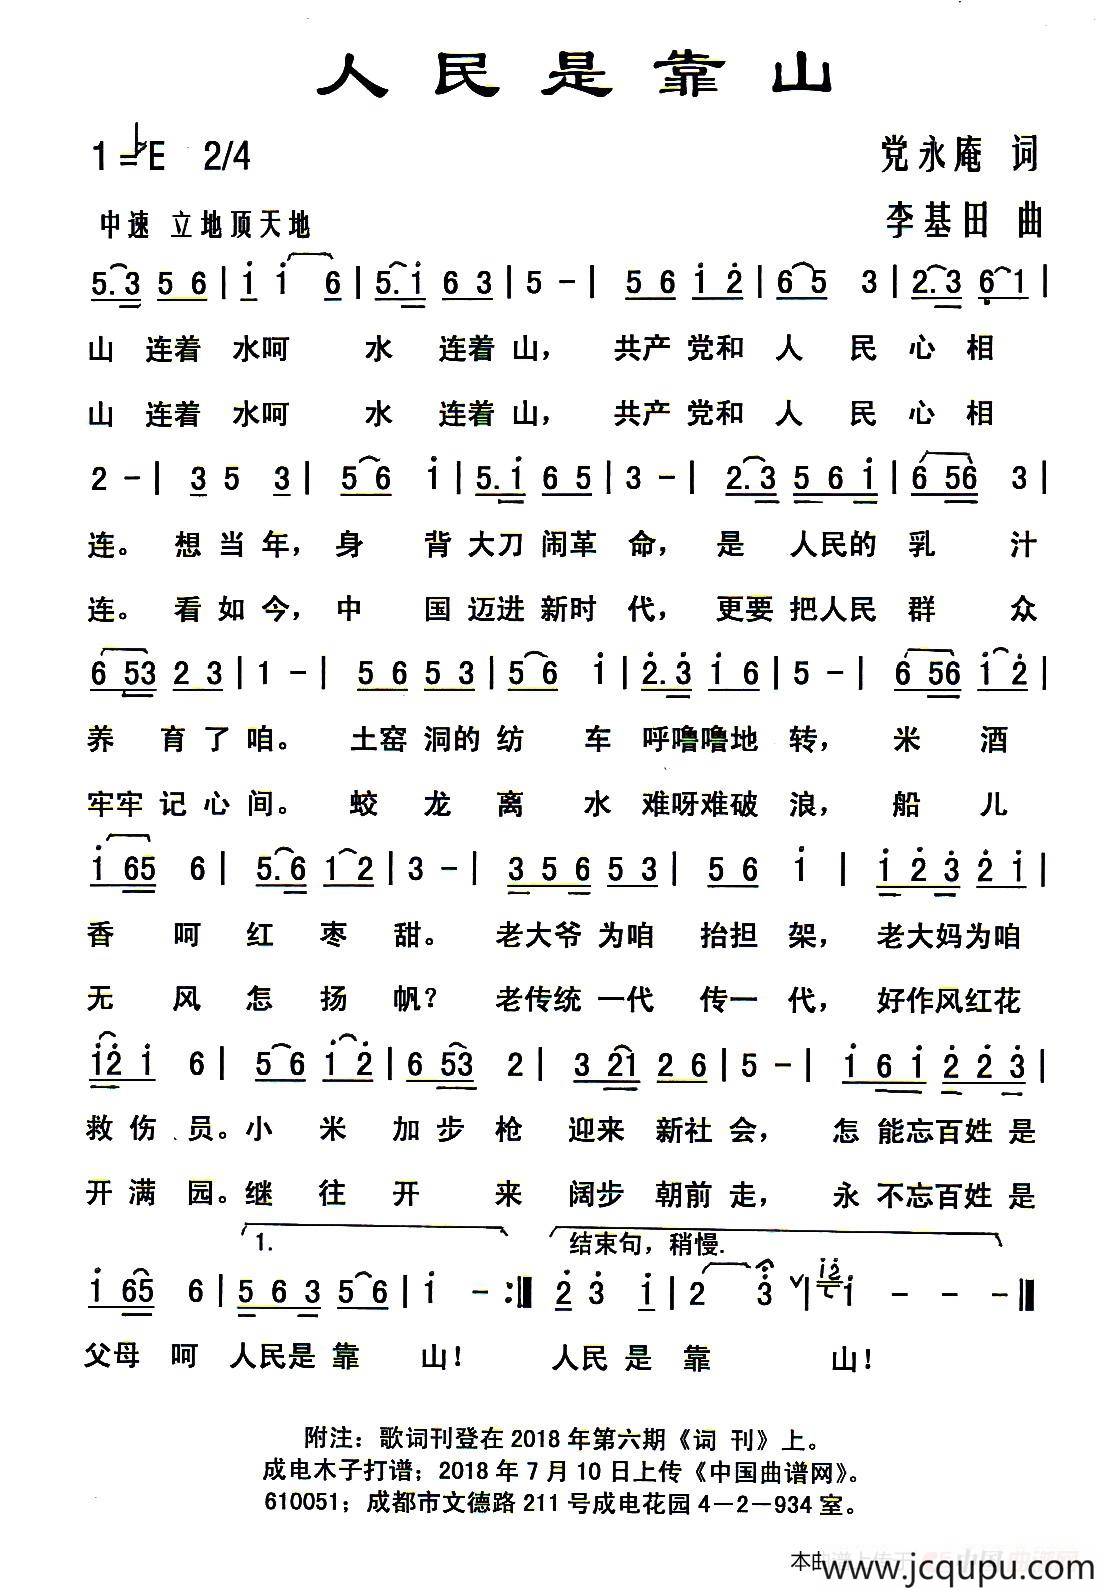 人民是靠山
1=♭E 2/4
党永庵 词
中速 立地顶天地
李基田 曲
5.3 5 6 | i i 6 | 5.i 6 3 | 5 - | 5 6 i 2 | 6 5 3 | 2.3 6 1 |
山 连着 水呵 水 连着山， 共产党和 人 民 心 相
山 连着 水呵 水 连着山， 共产党和 人 民 心 相
2 - | 3 5 3 | 5 6 i | 5.i 6 5 | 3 - | 2.3 5 6 i | 6 56 3 |
连。 想当年， 身 背大刀闹革 命， 是 人民的 乳 汁
连。 看如今， 中 国迈进新时代， 更要把人民 群 众
6 53 2 3 | 1 - | 5 6 5 3 | 5 6 i | 2.3 i 6 | 5 - | 6 56 i 2 |
养 育了咱。 土窑洞的纺 车 呼噜噜地 转， 米 酒
牢牢记心间。 蛟龙离 水 难呀难破浪， 船 儿
i 65 6 | 5.6 1 2 | 3 - | 3 5 6 5 3 | 5 6 i | i 2 3 2 i |
香 呵 红 枣 甜。 老大爷为咱 抬担 架， 老大妈为咱
无 风 怎 扬 帆？ 老传统一代 传一 代， 好作风红花
i2 i 6 | 5 6 i 2 | 6 53 2 | 3 21 2 6 | 5 - | i 6 i 2 2 3 |
救伤员。小 米 加步枪 迎来 新社会， 怎 能忘百姓是
开满园。继 往 开 来 阔步 朝前走， 永 不忘百姓是
1. 结束句，稍慢.
i 65 6 | 5 6 3 5 6 | i - :‖ 2 3 i | 2 3 ∨| i2 i - - - ‖
父母 呵 人民是靠 山！ 人民是 靠 山！
附注：歌词刊登在2018年第六期《词 刊》上。
成电木子打谱；2018年7月10日上传《中国曲谱网》。
610051；成都市文德路211号成电花园4－2－934室。
www.jcqupu.com